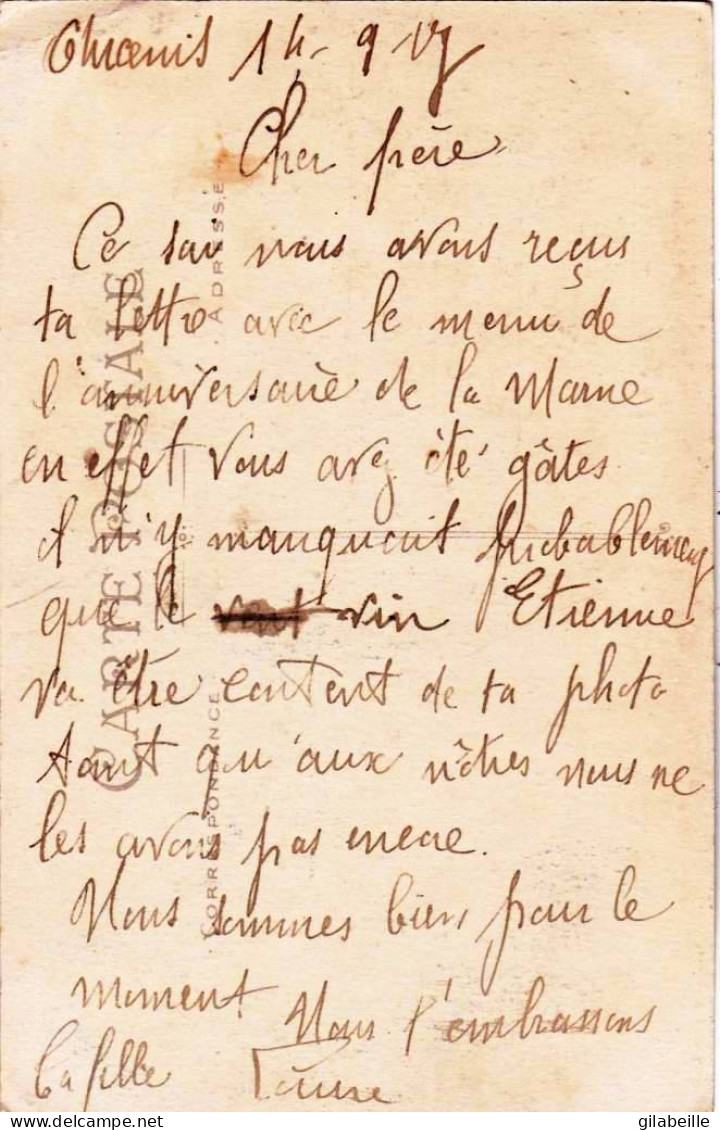 14-9-17
Cher frère
Ce soir nous avons reçus
ta lettre avec le menu de
l'anniversaire de la Marne
en effet vous avez été gâtes
il n'y manquait probablement
que le vin Etienne
va être content de ta photo
tant qu'aux nôtres nous ne
les avons pas encore.
Nous sommes bien pour le
moment Nous t'embrassons
ta fille
CARTE POSTALE
CORRESPONDANCE
ADRESSE
gilabeille